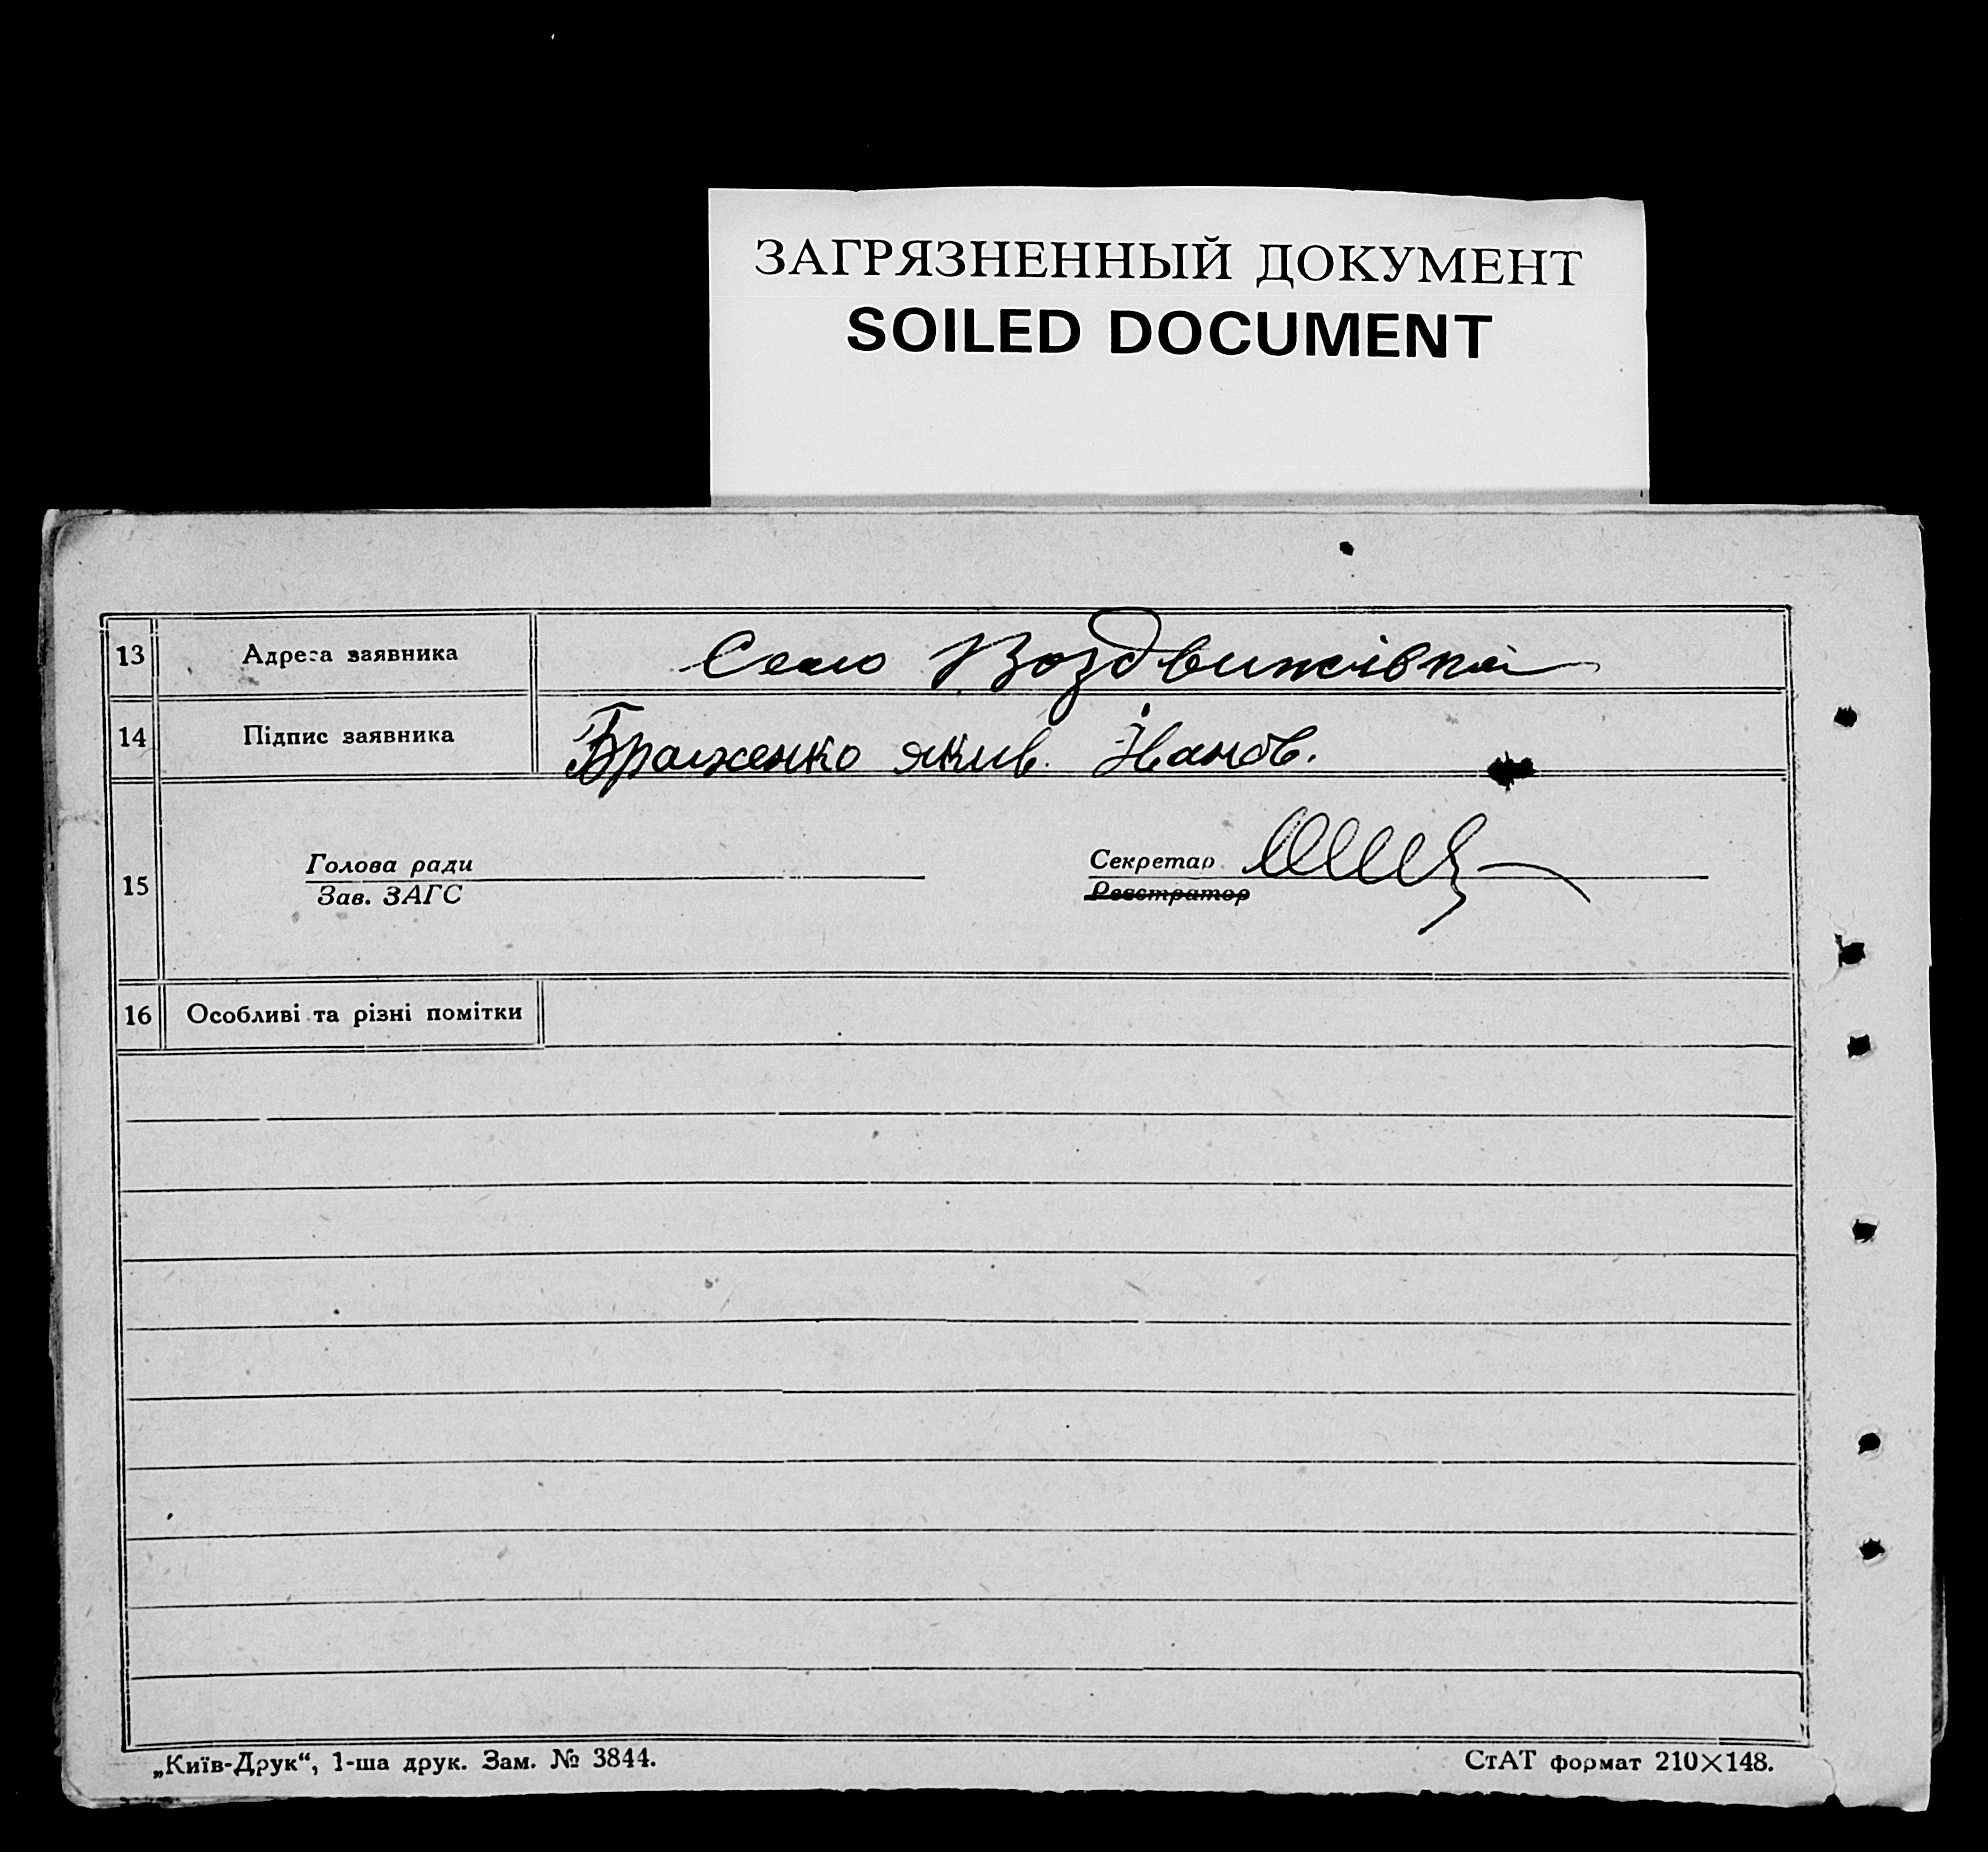 ЗАГРЯЗНЕННЫЙ ДОКУМЕНТ
SOILED DOCUMENT
13 Адреса заявника Село Воздвижівка
14 Підпис заявника Браженко Яків. Іванов.
Голова ради Секретар
15
Зав. ЗАГС Реєстратор
16 Особливі та різні помітки
„Київ-Друк“, 1-ша друк. Зам. № 3844. СтАТ формат 210×148.